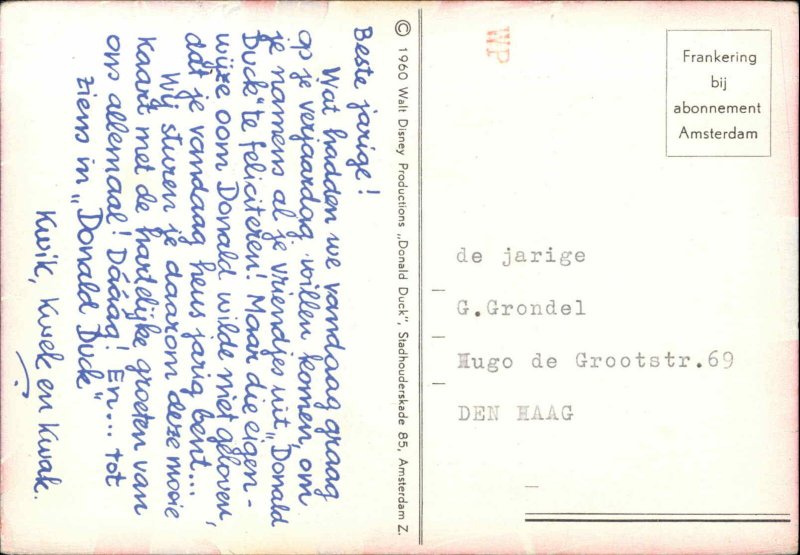 Beste jarige!
Wat hadden we vandaag graag
op je verjaardag willen komen, om
je namens al je vriendjes uit „Donald
Duck" te feliciteren! Maar die eigen-
wijze oom Donald wilde niet geloven,
dat je vandaag heus jarig bent...
Wij sturen je daarom deze mooie
kaart met de hartelijke groeten van
ons allemaal! Dááág! En... tot
ziens in „Donald Duck"
Kwik, Kwek en Kwak.
© 1960 Walt Disney Productions „Donald Duck", Stadhouderskade 85, Amsterdam Z.
WP
Frankering
bij
abonnement
Amsterdam
de jarige
G.Grondel
Hugo de Grootstr.69
DEN HAAG